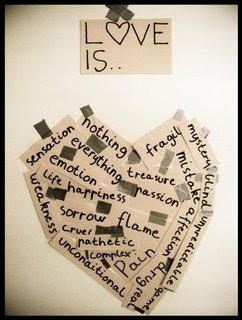 LOVE
IS..
nothing
sensation
everything
fragil
mystery
blind
emotion
treasure
mistake
unpredictable
life
happiness
passion
affection
weakness
sorrow
flame
cruel
pathetic
pain
drug
game
complex
real
unconditional